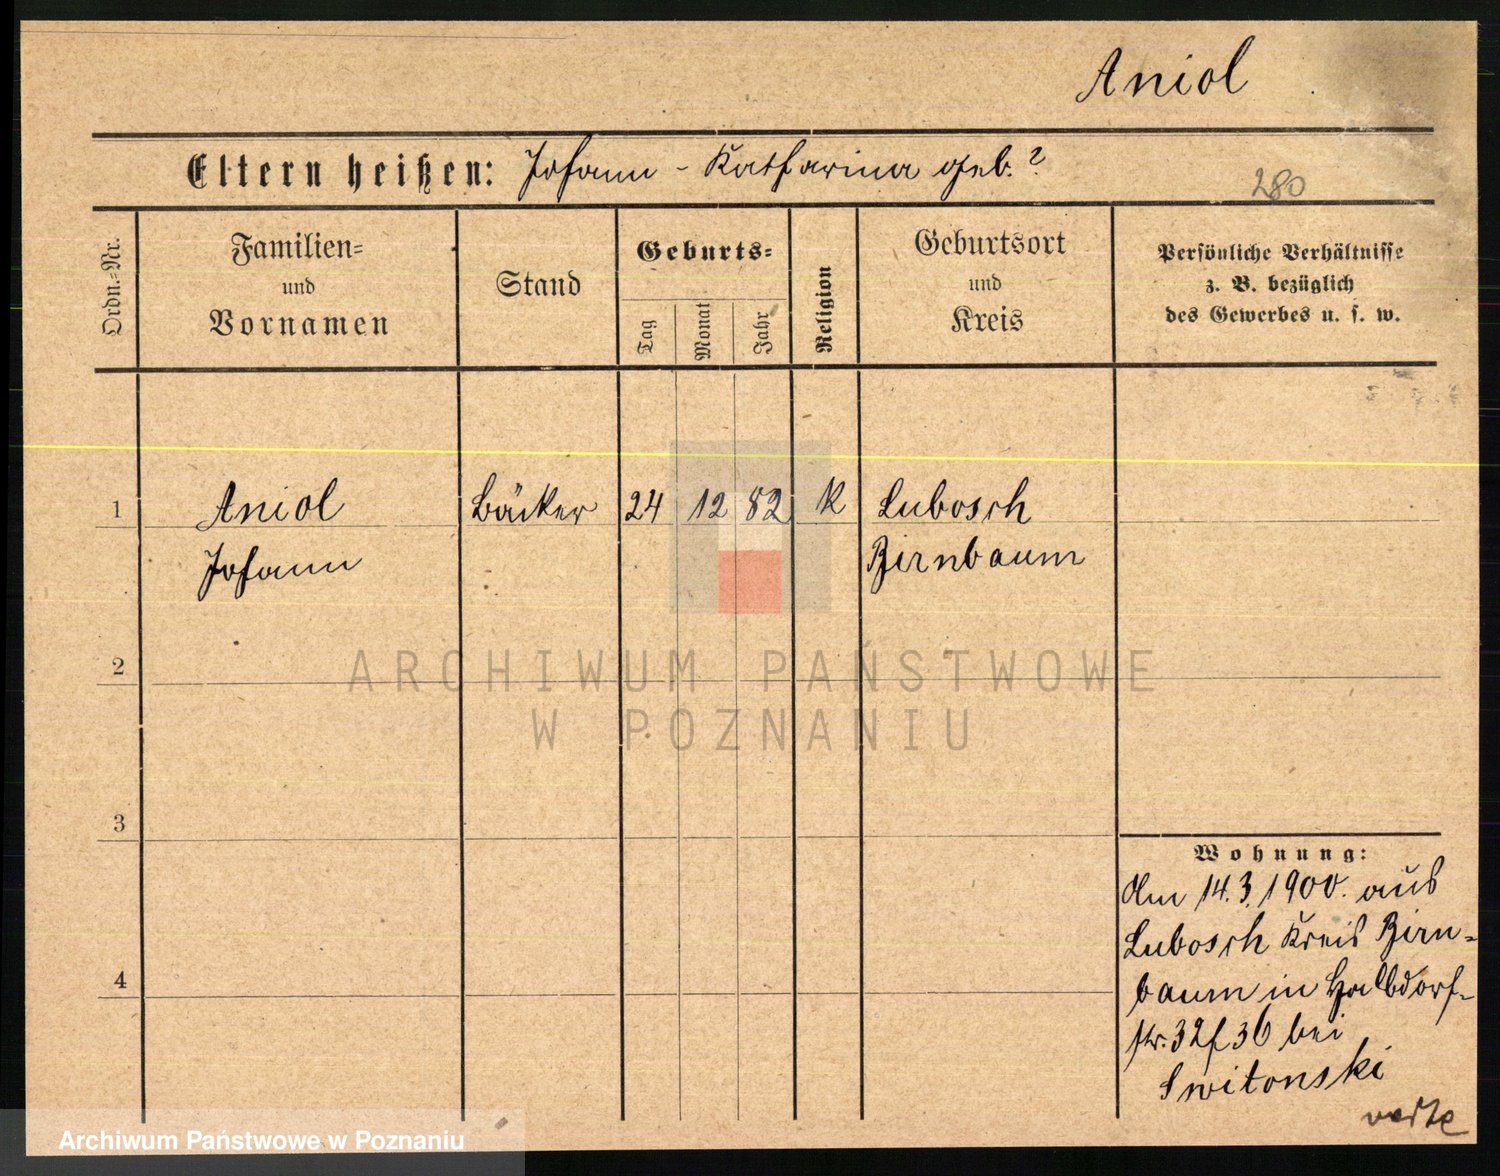 Aniol
Eltern heißen: Johann - Katharina geb. ?
280
Ordn.=Nr.
Familien=
und
Vornamen
Stand
Geburts=
Tag
Monat
Jahr
Religion
Geburtsort
und
Kreis
Persönliche Verhältnisse
z. B. bezüglich
des Gewerbes u. s. w.
1 Aniol Bäcker 24 12 82 K Lubosch
Johann Birnbaum
2
ARCHIWUM PAŃSTWOWE
W POZNANIU
3
4
Wohnung:
Am 14.3.1900. aus
Lubosch Kreis Birn-
baum in Halbdorf-
str. 32/36 bei
Switonski
verte
Archiwum Państwowe w Poznaniu